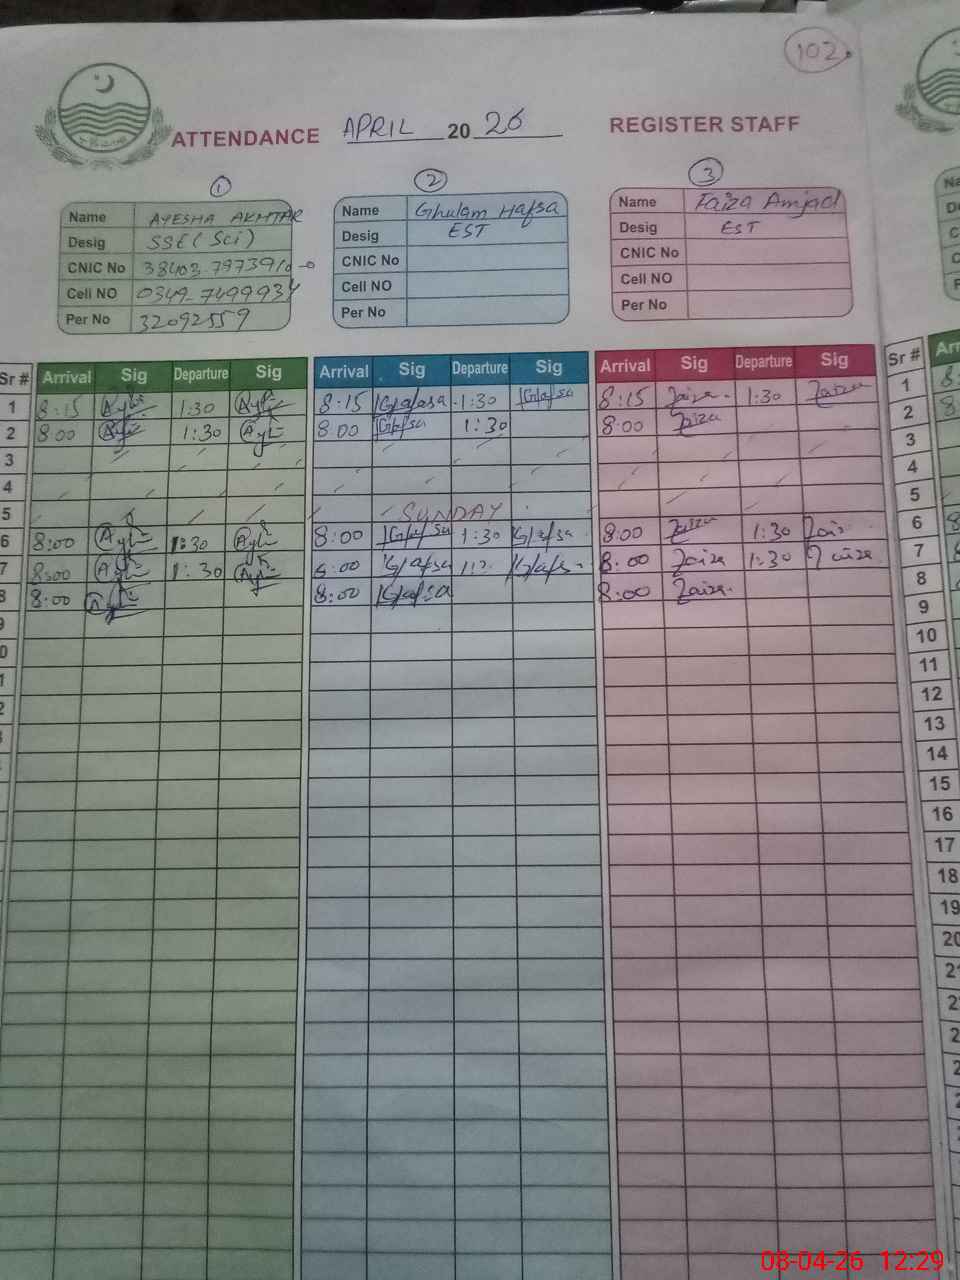 102
ATTENDANCE APRIL 20 26 REGISTER STAFF
1 2 3
Name AYESHA AKHTAR
Desig SSE (Sci)
CNIC No
Cell NO 0349-7499934
Per No 32092559
Name Ghulam Hafsa
Desig EST
CNIC No
Cell NO
Per No
Name Faiza Amjad
Desig EST
CNIC No
Cell NO
Per No
Sr # Arrival Sig Departure Sig Arrival Sig Departure Sig Arrival Sig Departure Sig Sr #
1 8:15 1:30 8:15 1:30 8:15 Faiza 1:30 Faiza 1
2 8:00 1:30 8:00 1:30 8:00 Faiza 2
3 3
4 4
5 SUNDAY 5
6 8:00 1:30 8:00 1:30 8:00 Faiza 1:30 6
7 8:00 1:30 8:00 8:00 Faiza 1:30 Faiza 7
8 8:00 8:00 8:00 Faiza 8
9
10
11
12
13
14
15
16
17
18
19
20
08-04-26 12:29